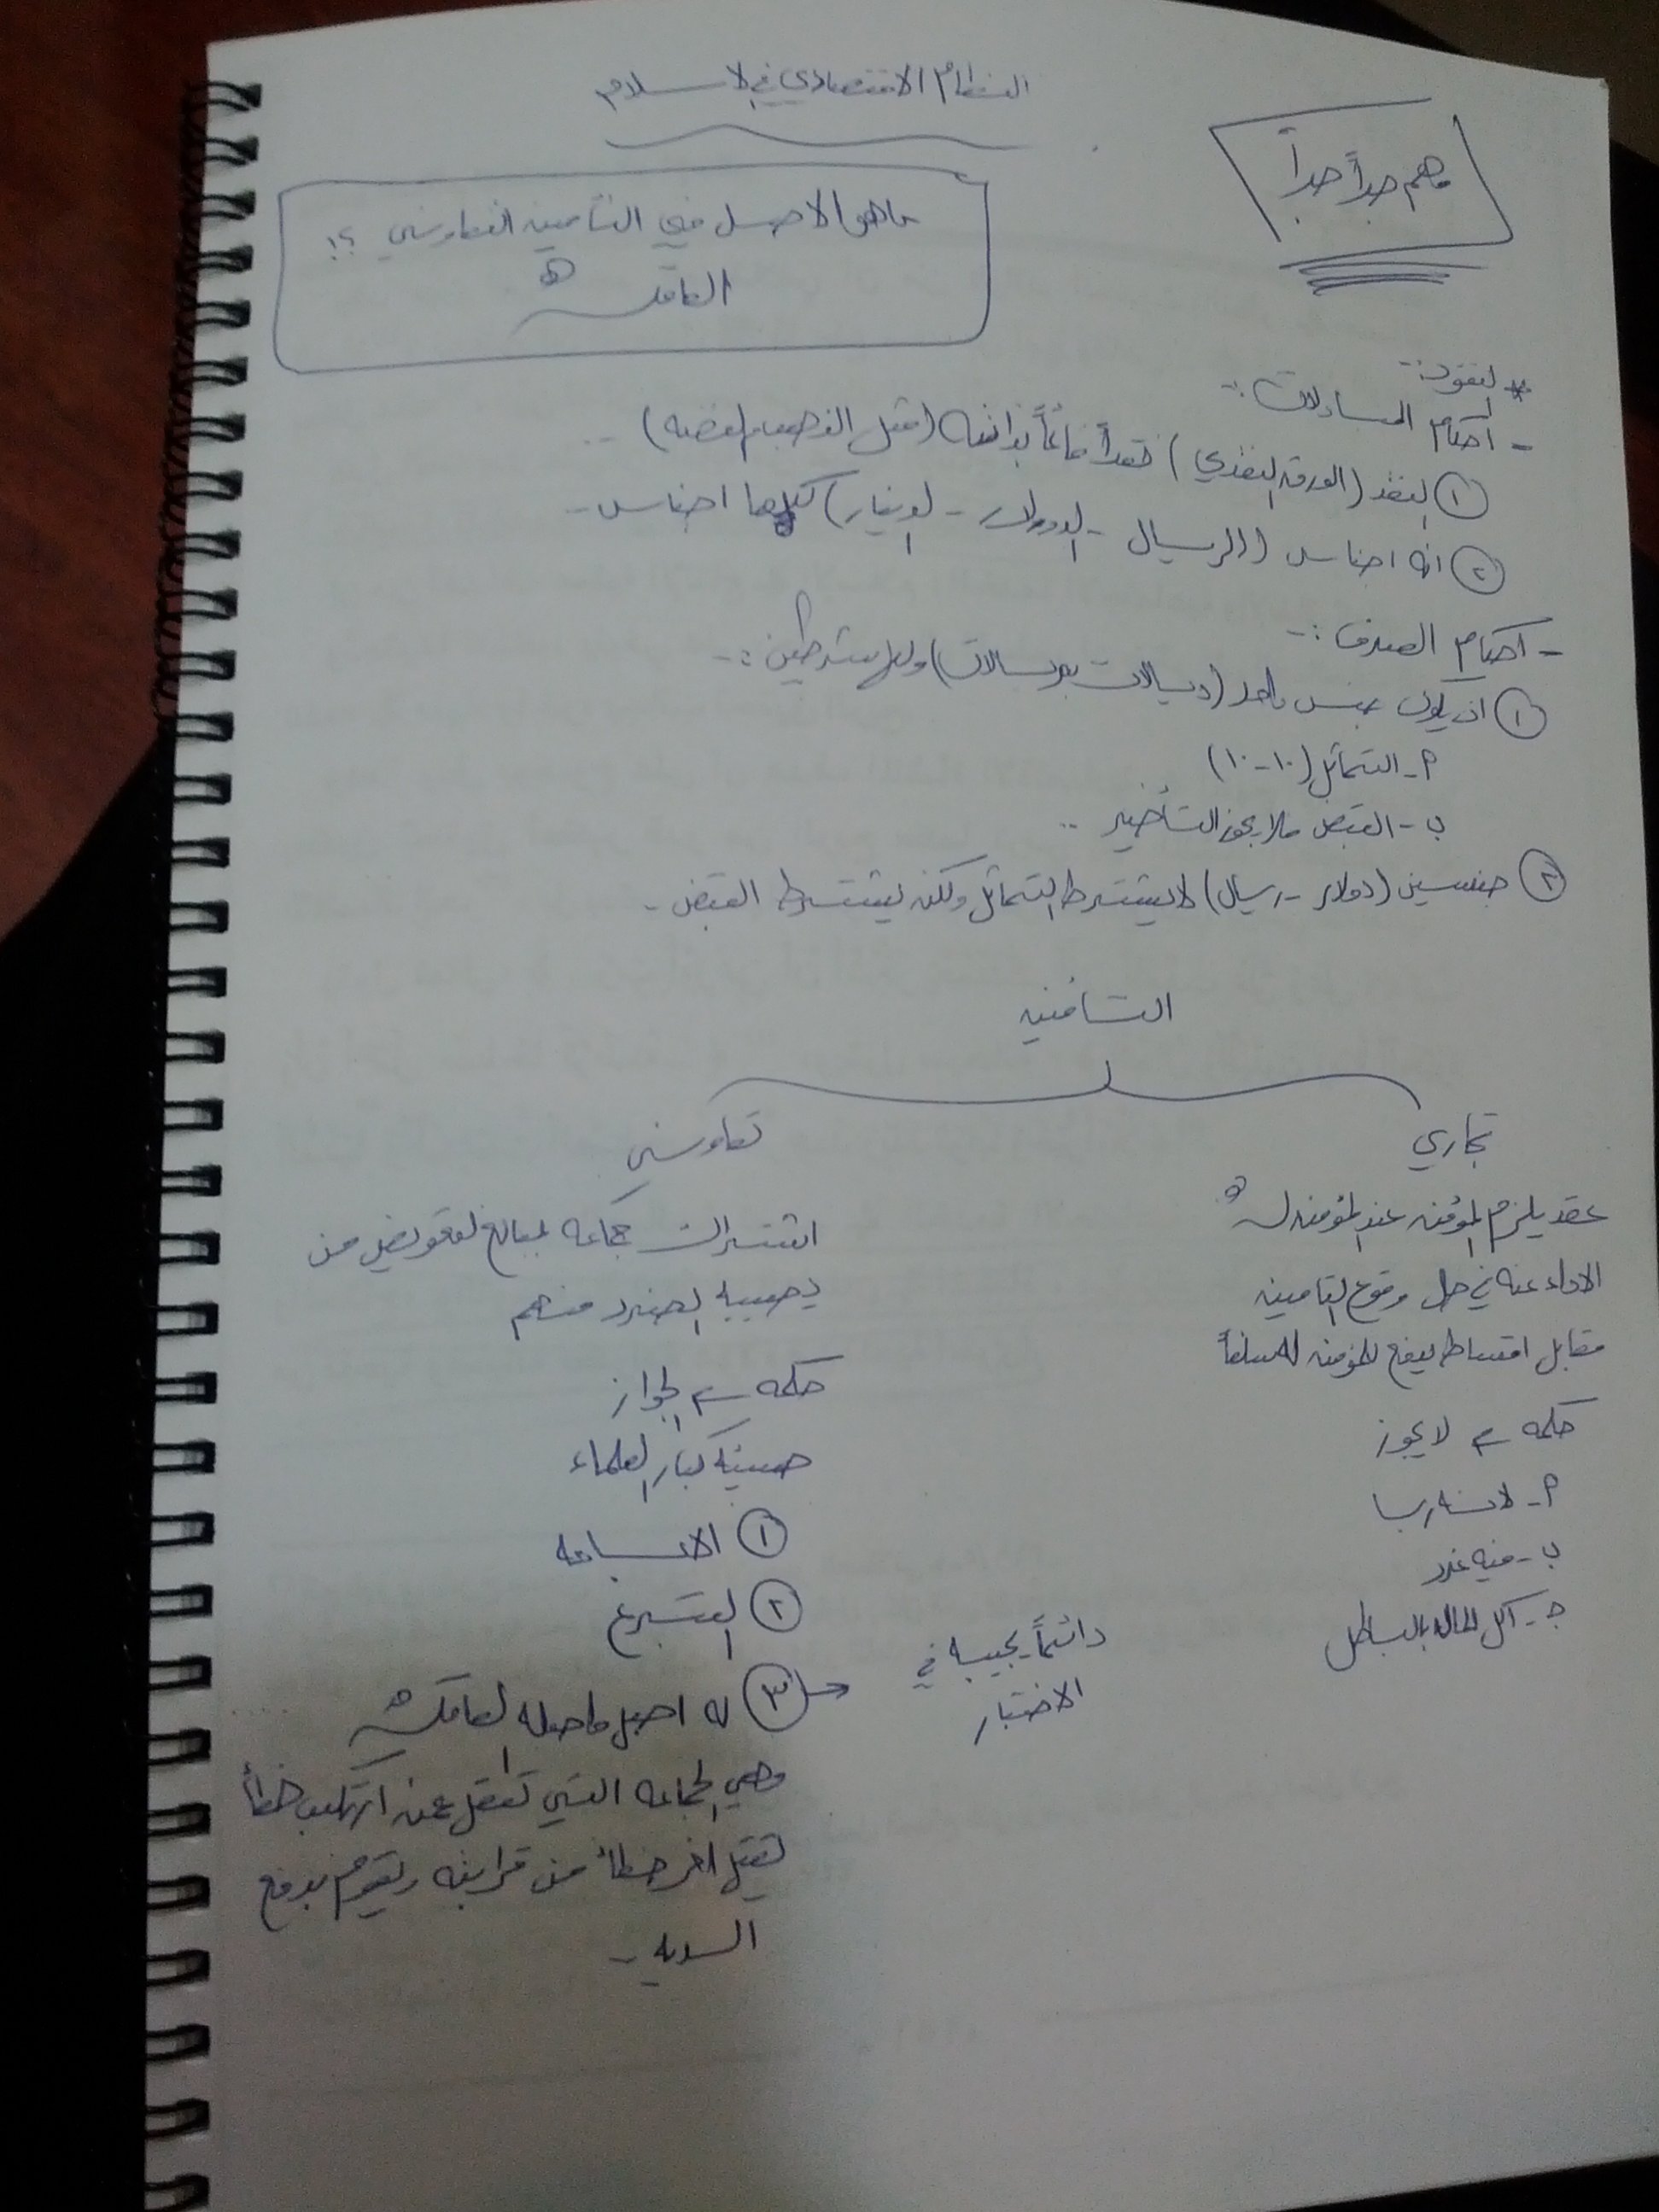 النظام الاقتصادي في الاسلام
مهم جداً جداً
ماهو الاصل في التأمين التعاوني ؟!
العاقله
* النقود :-
- احكام المبادلات :-
① النقد (الورقه النقدي) نقداً قائماً بذاته (مثل الذهب والفضه) ..
② انه اجناس (الريال - الدولار - الدينار) كلها اجناس -
- احكام الصرف :-
① ان يكون جنس واحد (ريالات بريالات) وله شرطين :-
أ- التماثل (١٠-١٠)
ب- القبض فلا يجوز التأخير ..
② جنسين (دولار - ريال) لا يشترط التماثل ولكن يشترط القبض -
التأمين
تجاري
عقد يلزم المؤمن عند المؤمن له
الاداء عنه في حال وقوع التامين
مقابل اقساط يدفع المؤمن له مبلغاً
حكمه لا يجوز
أ- لانه ربا
ب- فيه غرر
ج- آكل المال بالباطل
تعاوني
اشتراك جماعه بمبالغ لتعويض من
يصيبه الضرر منهم
حكمه الجواز
هيئة كبار العلماء
① الاباحه
② التبرع
③ له اصل واصله العاقله
دائماً يجيبه في
الاختبار
وهي الجماعه التي تعقل عن ارتكب خطأ
لقتل اخر خطأ من قرابته وتقوم بدفع
الديه -